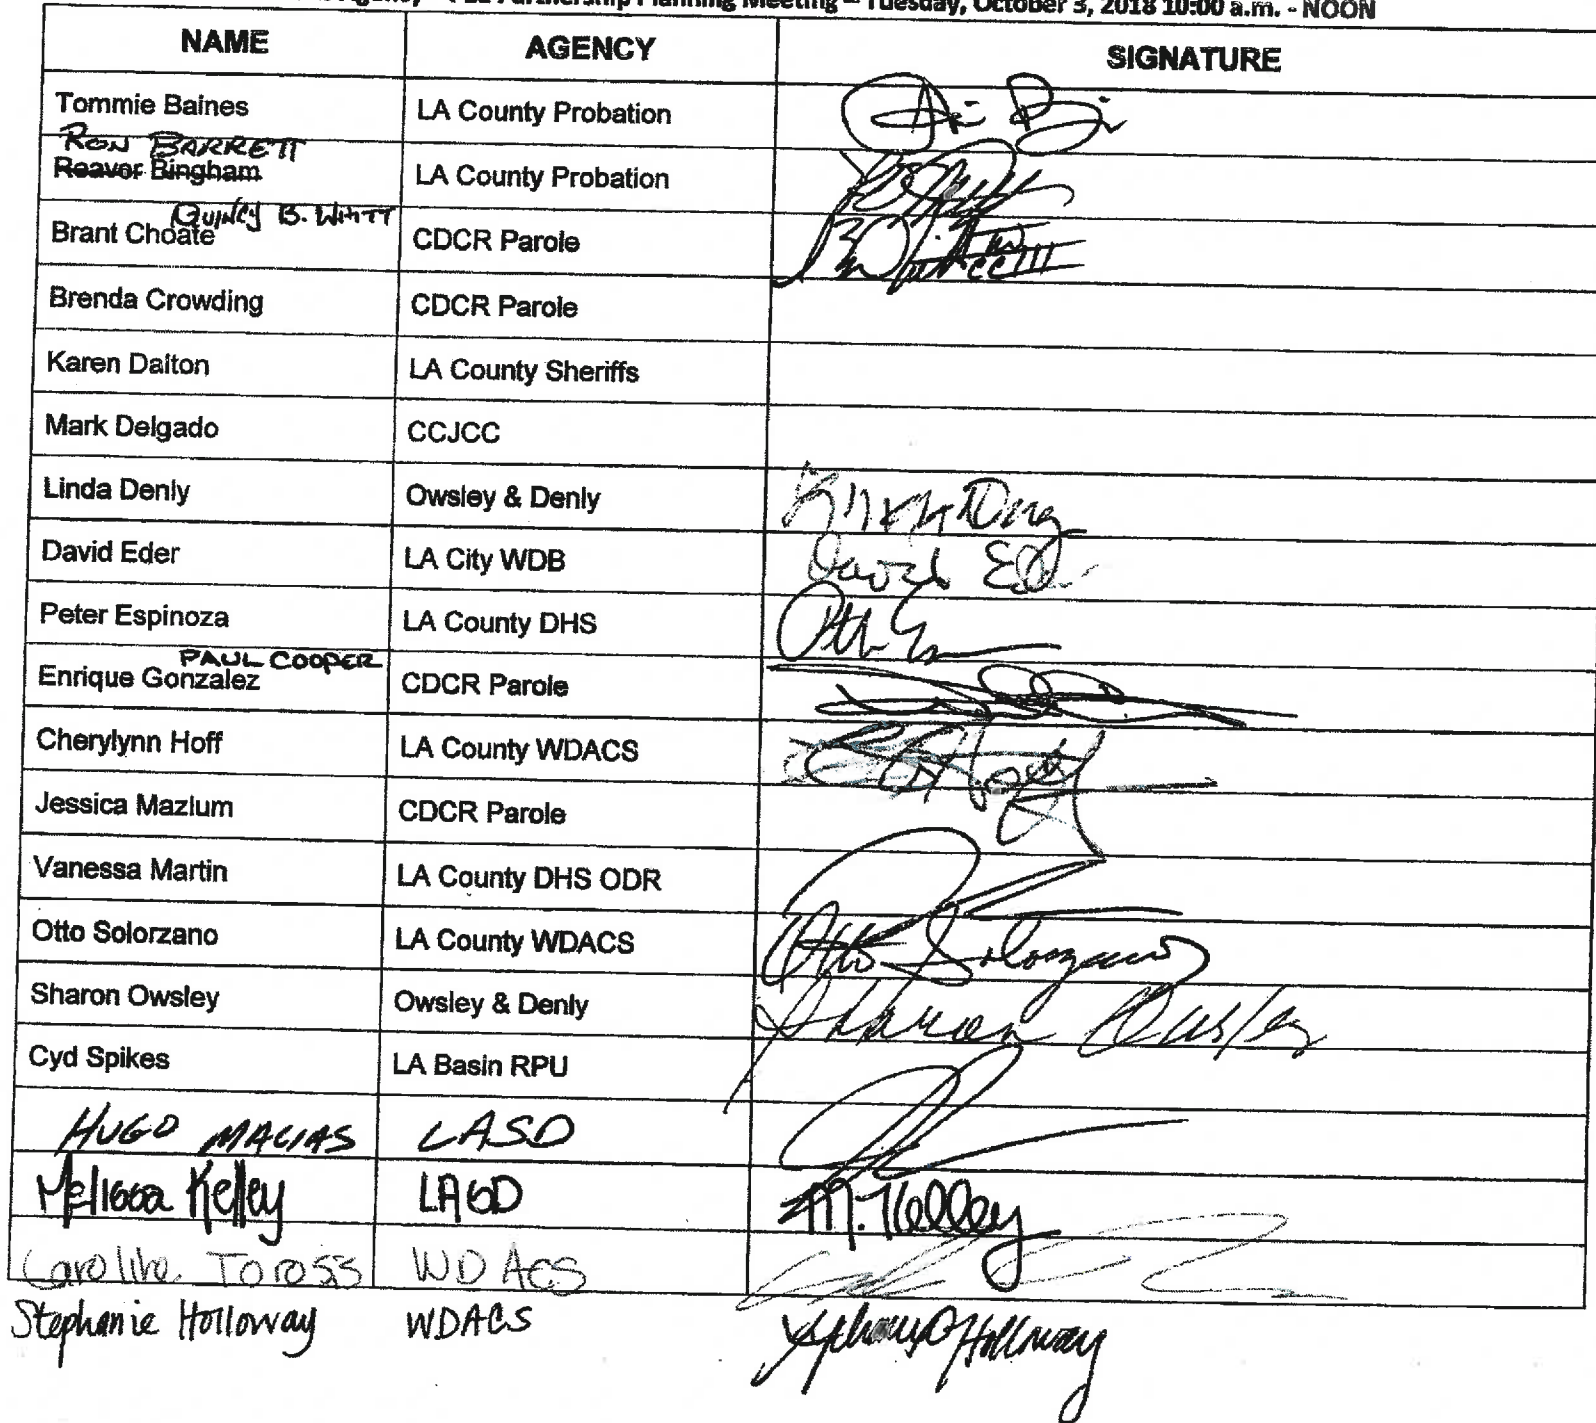 Partnership Planning Meeting – Tuesday, October 3, 2018 10:00 a.m. - NOON
NAME AGENCY SIGNATURE
Tommie Baines LA County Probation
RON BARRETT
Reaver Bingham LA County Probation
QUINCY B. WHITT
Brant Choate CDCR Parole
Brenda Crowding CDCR Parole
Karen Dalton LA County Sheriffs
Mark Delgado CCJCC
Linda Denly Owsley & Denly
David Eder LA City WDB David Eder
Peter Espinoza LA County DHS
PAUL COOPER
Enrique Gonzalez CDCR Parole
Cherylynn Hoff LA County WDACS
Jessica Mazlum CDCR Parole
Vanessa Martin LA County DHS ODR
Otto Solorzano LA County WDACS Otto Solorzano
Sharon Owsley Owsley & Denly Sharon Owsley
Cyd Spikes LA Basin RPU
HUGO MACIAS LASD
Melissa Kelley LASD M. Kelley
Caroline Toross WDACS
Stephanie Holloway WDACS Stephanie Holloway